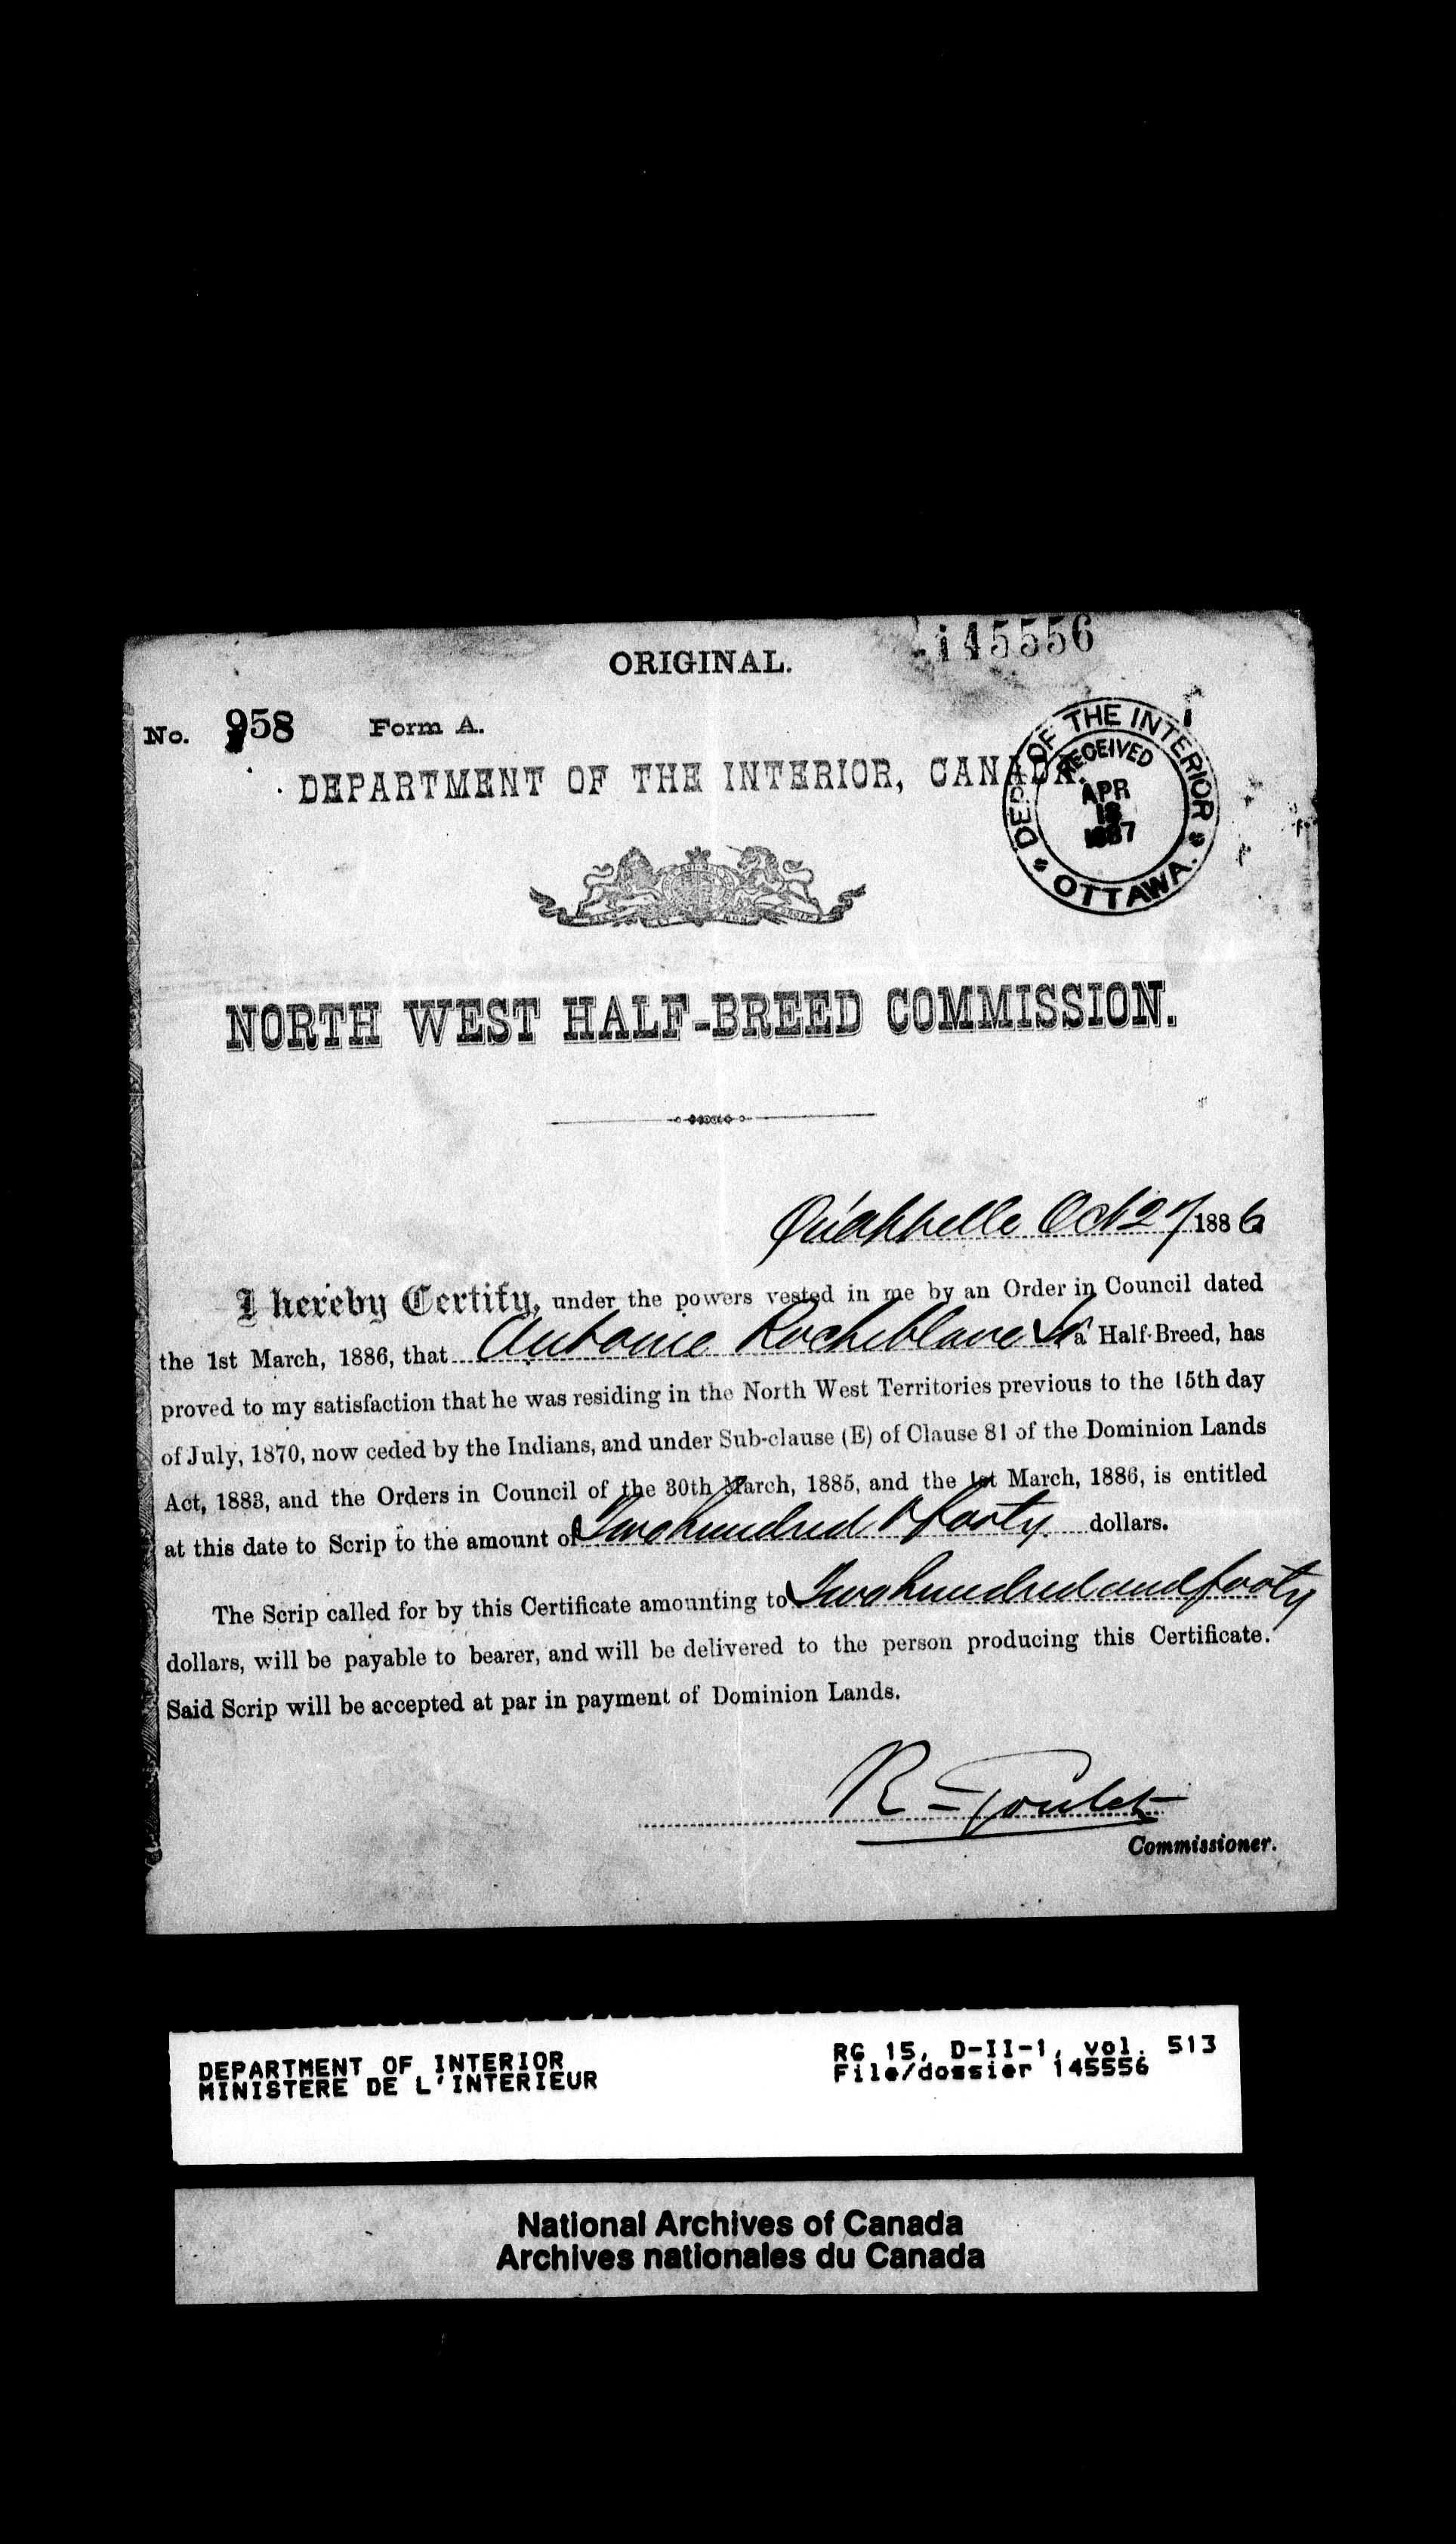 145556
ORIGINAL.
No. 958 Form A.
DEPARTMENT OF THE INTERIOR, CANADA.
DEP. OF THE INTERIOR
RECEIVED
APR
18
1887
OTTAWA.
NORTH WEST HALF-BREED COMMISSION.
Qu'appelle Oct 27 1886
I hereby Certify, under the powers vested in me by an Order in Council dated
the 1st March, 1886, that Antoine Rocheblave Sr a Half-Breed, has
proved to my satisfaction that he was residing in the North West Territories previous to the 15th day
of July, 1870, now ceded by the Indians, and under Sub-clause (E) of Clause 81 of the Dominion Lands
Act, 1883, and the Orders in Council of the 30th March, 1885, and the 1st March, 1886, is entitled
at this date to Scrip to the amount of Two hundred & forty dollars.
The Scrip called for by this Certificate amounting to Two hundred and forty
dollars, will be payable to bearer, and will be delivered to the person producing this Certificate.
Said Scrip will be accepted at par in payment of Dominion Lands.
R. Goulet
Commissioner.
DEPARTMENT OF INTERIOR
MINISTERE DE L'INTERIEUR
RG 15, D-II-1, vol. 513
File/dossier 145556
National Archives of Canada
Archives nationales du Canada